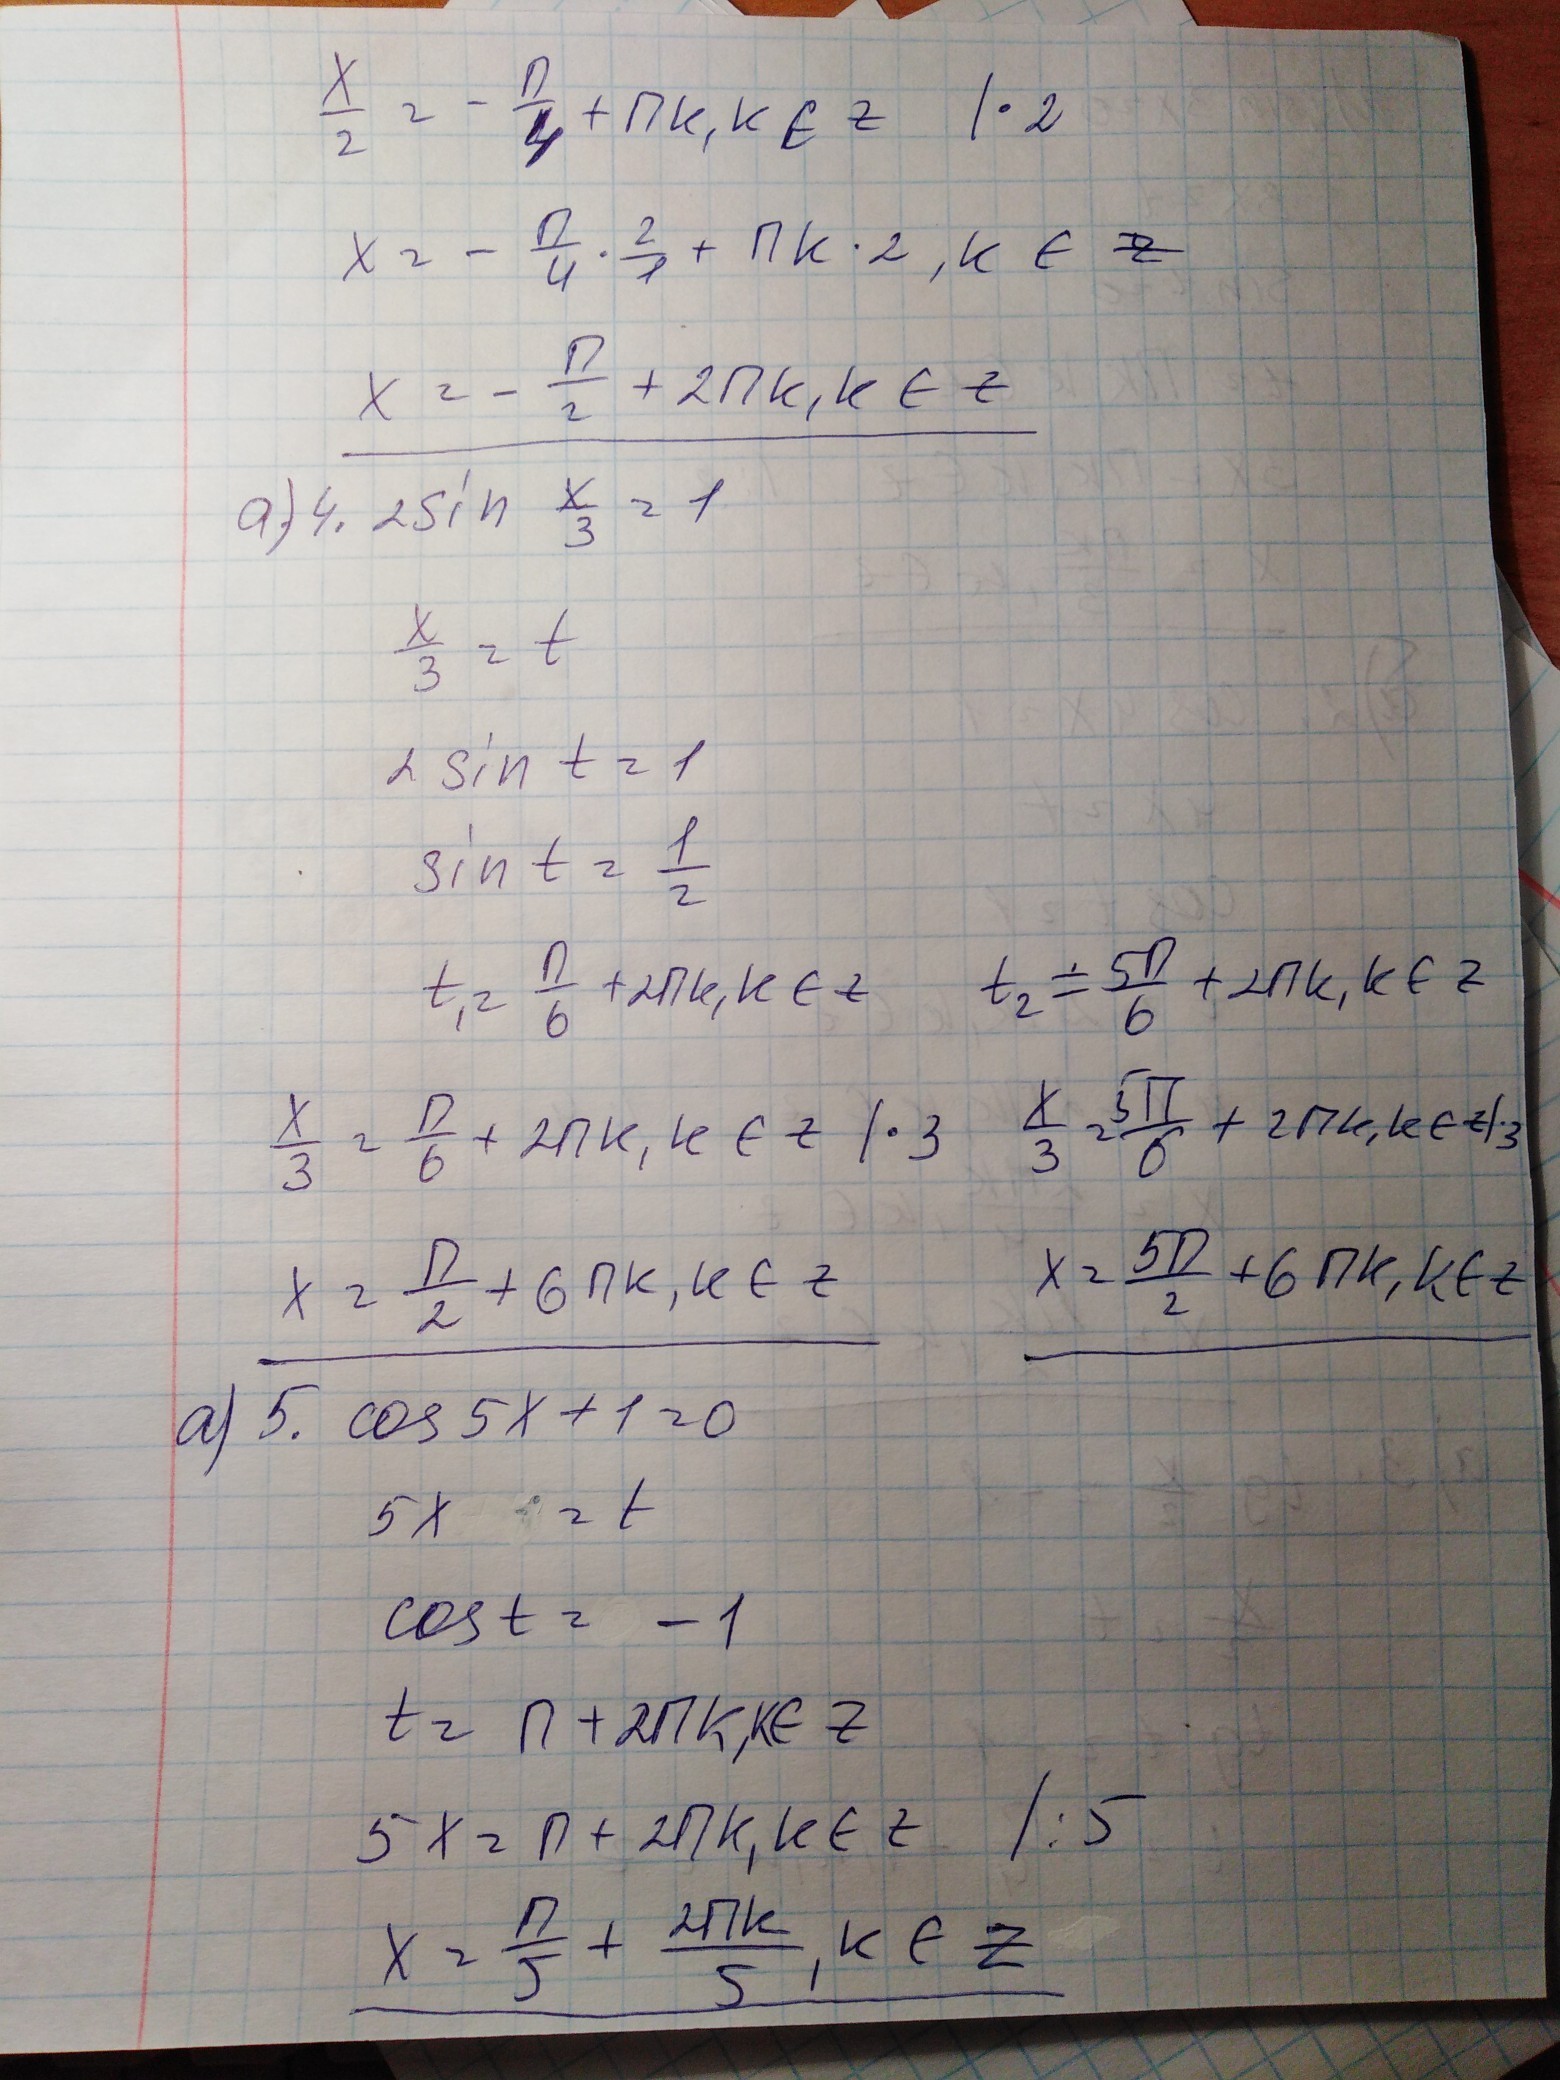 x/2 = - П/4 + Пk, k ∈ z | · 2
x = - П/4 · 2/1 + Пk · 2, k ∈ z
x = - П/2 + 2Пk, k ∈ z
а) 4. 2sin x/3 = 1
x/3 = t
2 sin t = 1
sin t = 1/2
t₁ = П/6 + 2Пk, k ∈ z t₂ = 5П/6 + 2Пk, k ∈ z
x/3 = П/6 + 2Пk, k ∈ z | · 3 x/3 = 5П/6 + 2Пk, k ∈ z | · 3
x = П/2 + 6Пk, k ∈ z x = 5П/2 + 6Пk, k ∈ z
а) 5. cos 5x + 1 = 0
5x = t
cos t = - 1
t = П + 2Пk, k ∈ z
5x = П + 2Пk, k ∈ z | : 5
x = П/5 + 2Пk/5, k ∈ z